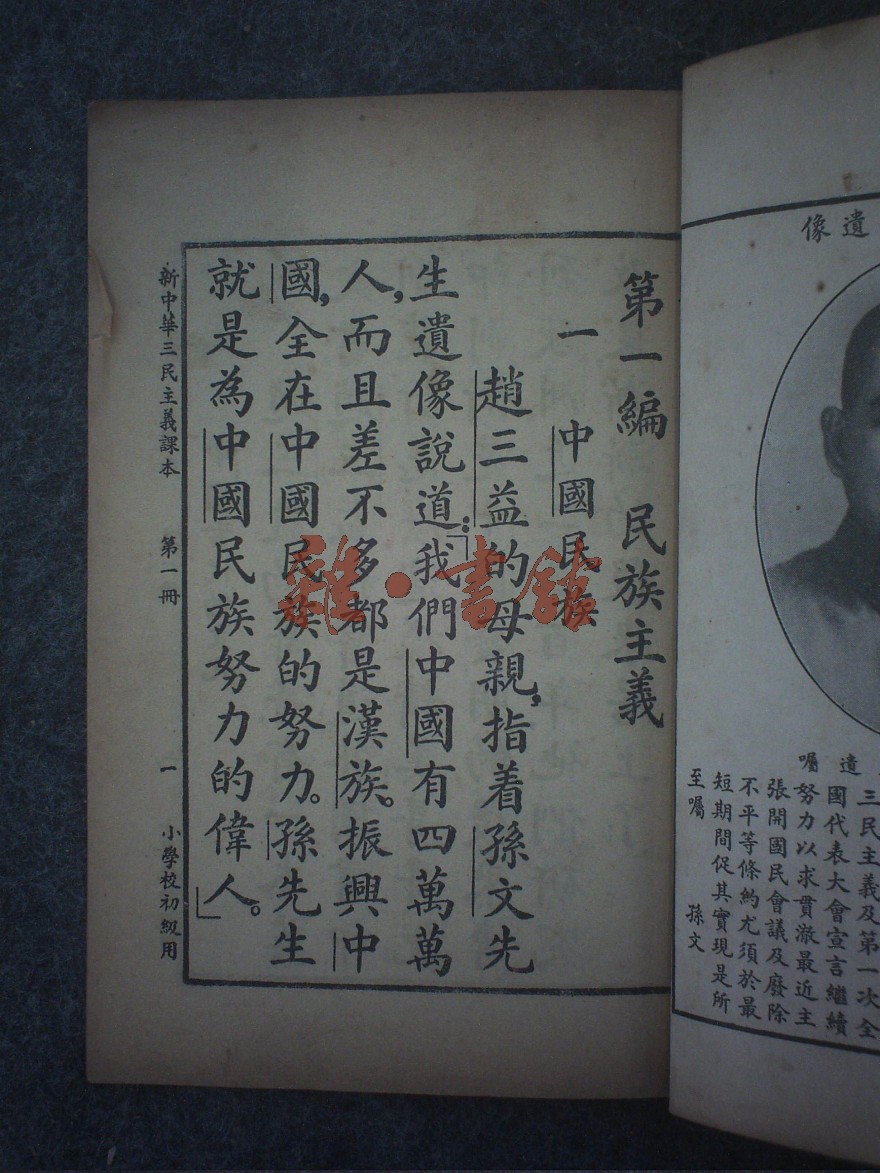 遺像
遺囑
三民主義及第一次全
國代表大會宣言繼續
努力以求貫澈最近主
張開國民會議及廢除
不平等條約尤須於最
短期間促其實現是所
至囑 孫文
第一編 民族主義
一 中國民族
趙三益的母親,指着孫文先
生遺像說道:「我們中國有四萬萬
人,而且差不多都是漢族。振興中
國,全在中國民族的努力。孫先生
就是為中國民族努力的偉人。」
新中華三民主義課本 第一冊 一 小學校初級用
雜·書館